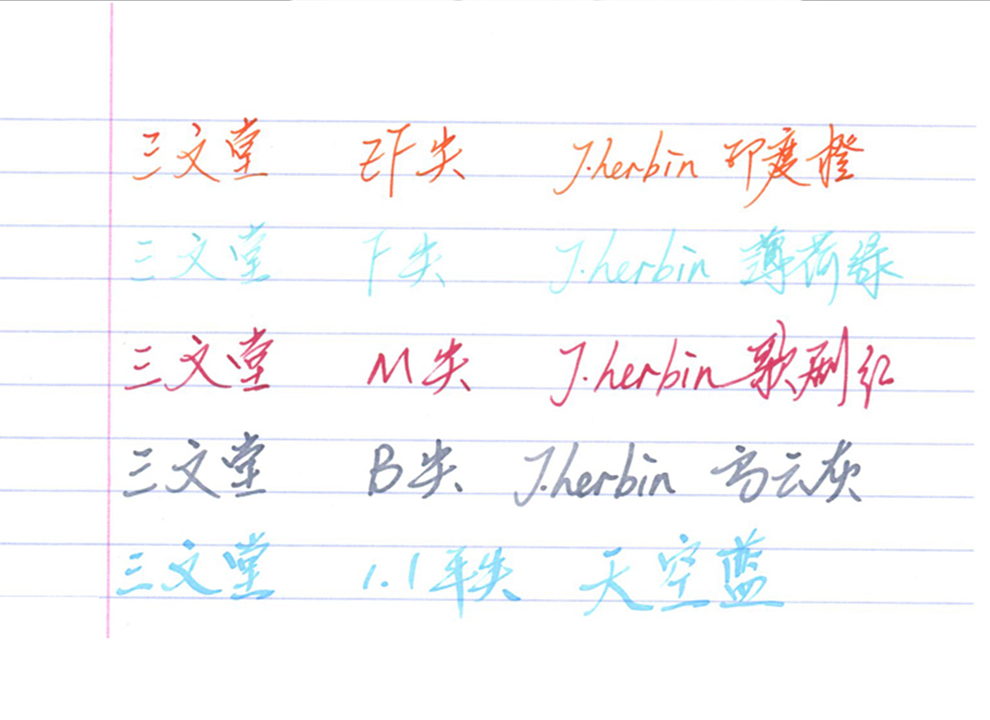 三文堂 EF尖 J.herbin 印度橙
三文堂 F尖 J.herbin 薄荷绿
三文堂 M尖 J.herbin 歌剧红
三文堂 B尖 J.herbin 乌云灰
三文堂 1.1平尖 天空蓝